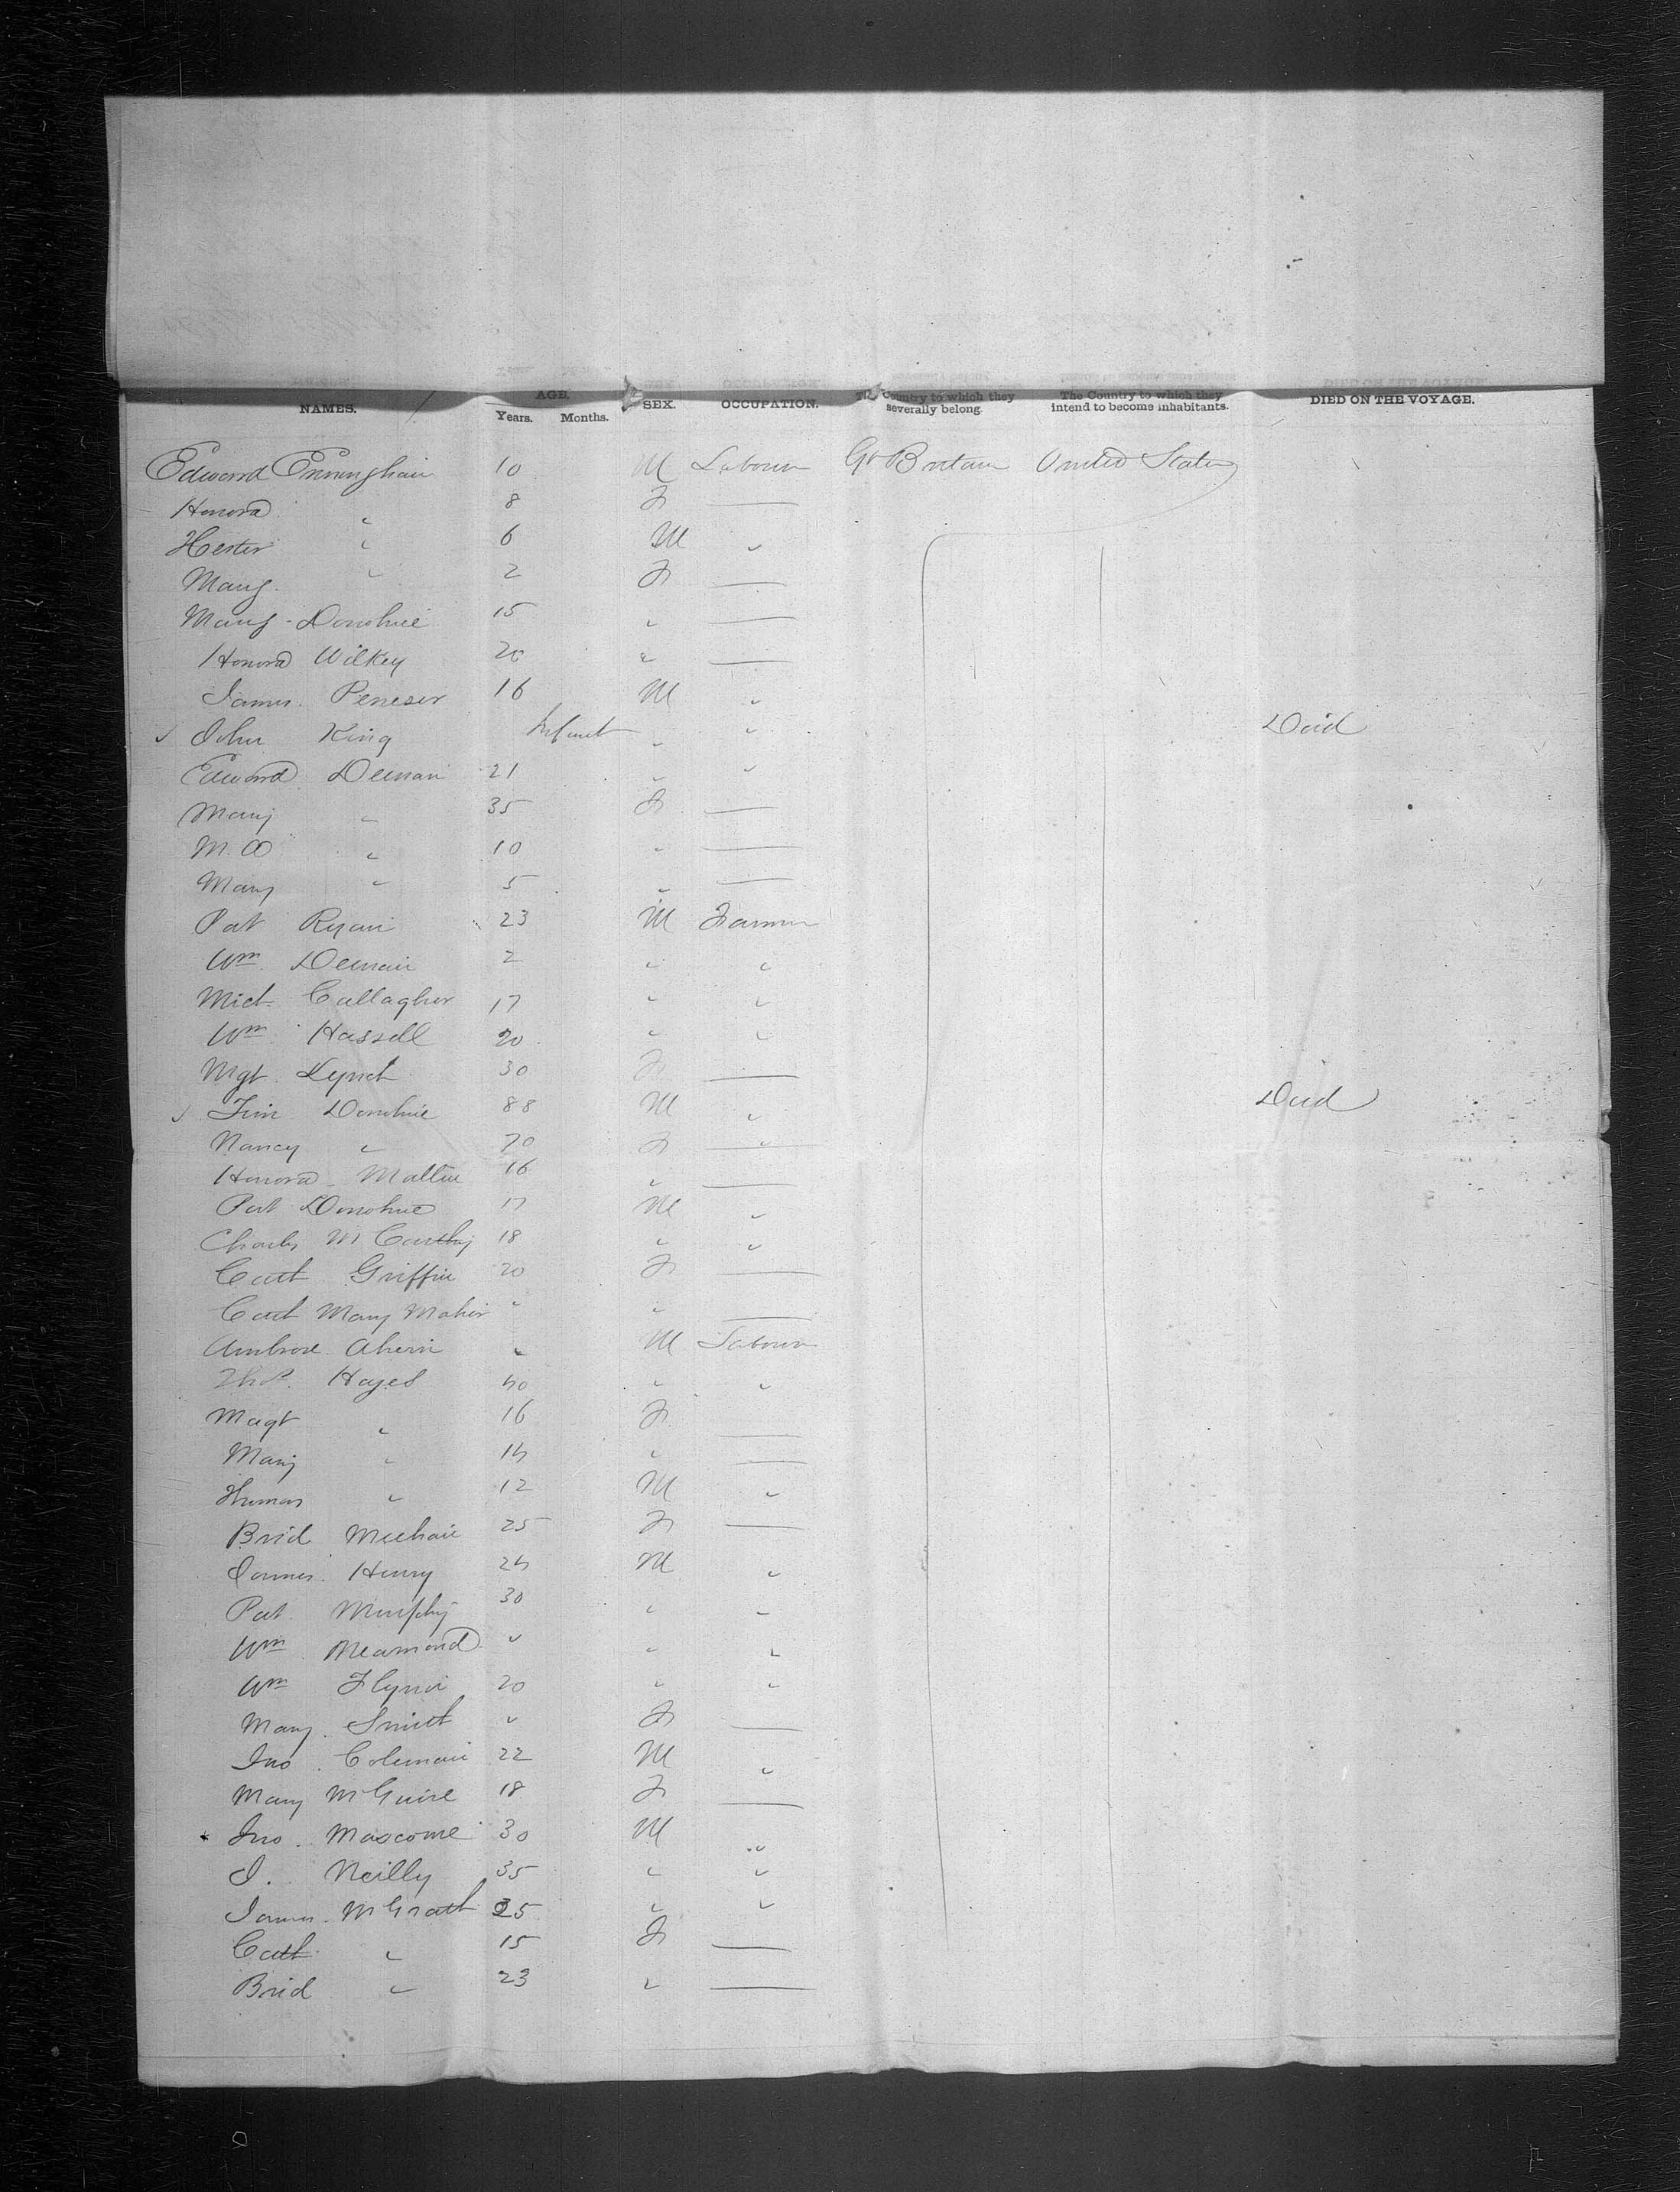 NAMES. AGE. Years. Months. SEX. OCCUPATION. The Country to which they severally belong. The Country to which they intend to become inhabitants. DIED ON THE VOYAGE.
Edward 10 M Labourer Gt Britain United States
Honora " 8 F —
Hester " 6 M "
Mary " 2 F —
Mary Donohue 15 " —
Honora Wilkey 20 " —
James 16 M "
John King Infant " " Died
Edward Deenan 21 " "
Mary " 35 F —
M. A " 10 " —
Mary " 5 " —
Pat Ryan 23 M Farmer
Wm Deenan 2 " "
Mich Callagher 17 " "
Wm Hassell 20 " "
Mgt Lynch 30 F —
Tim Donohue 88 M " Died
Nancy " 70 F "
Honora 16 " —
Pat Donohue 17 M "
Charls McCarthy 18 " "
Cath Griffin 20 F —
Cath Mary Maher " " —
Ambrose Ahern " M Labourer
Hayes 40 " "
Magt " 16 F —
Mary " 14 " —
Thomas " 12 M "
Brid Meehan 25 F —
James Henry 24 M "
Pat Murphy 30 " "
Wm " " "
Wm Flynn 20 " "
Mary Smith " F —
Jno Coleman 22 M "
Mary McGuire 18 F —
Jno. Mascome 30 M "
J. Neilly 35 " "
James McGrath 25 " "
Cath " 15 F —
Brid " 23 " —